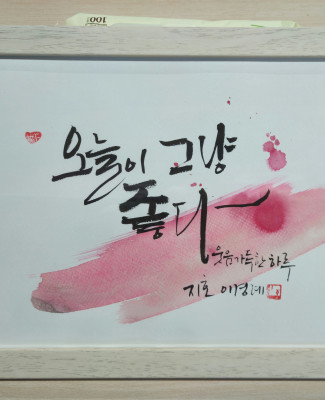 오늘이 그냥
좋다
웃음가득한 하루
지호 이경례
100